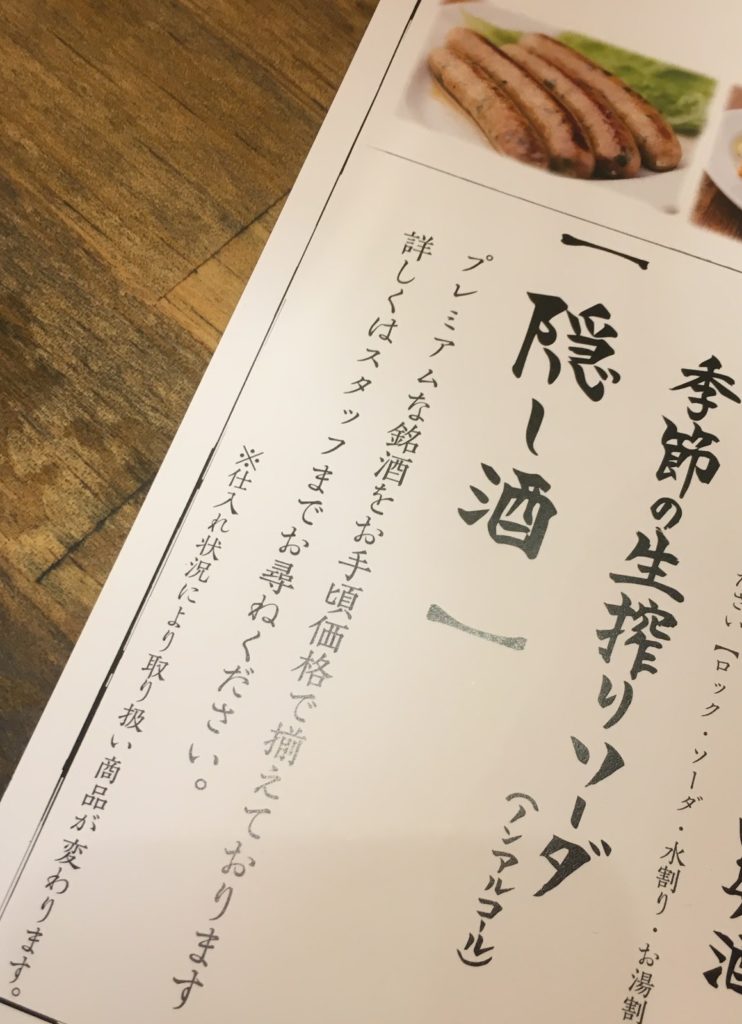 ださい【ロック・ソーダ・水割り・お湯割
季節の生搾りソーダ
(ノンアルコール)
【隠し酒】
プレミアムな銘酒をお手頃価格で揃えております
詳しくはスタッフまでお尋ねください。
※仕入れ状況により取り扱い商品が変わります。